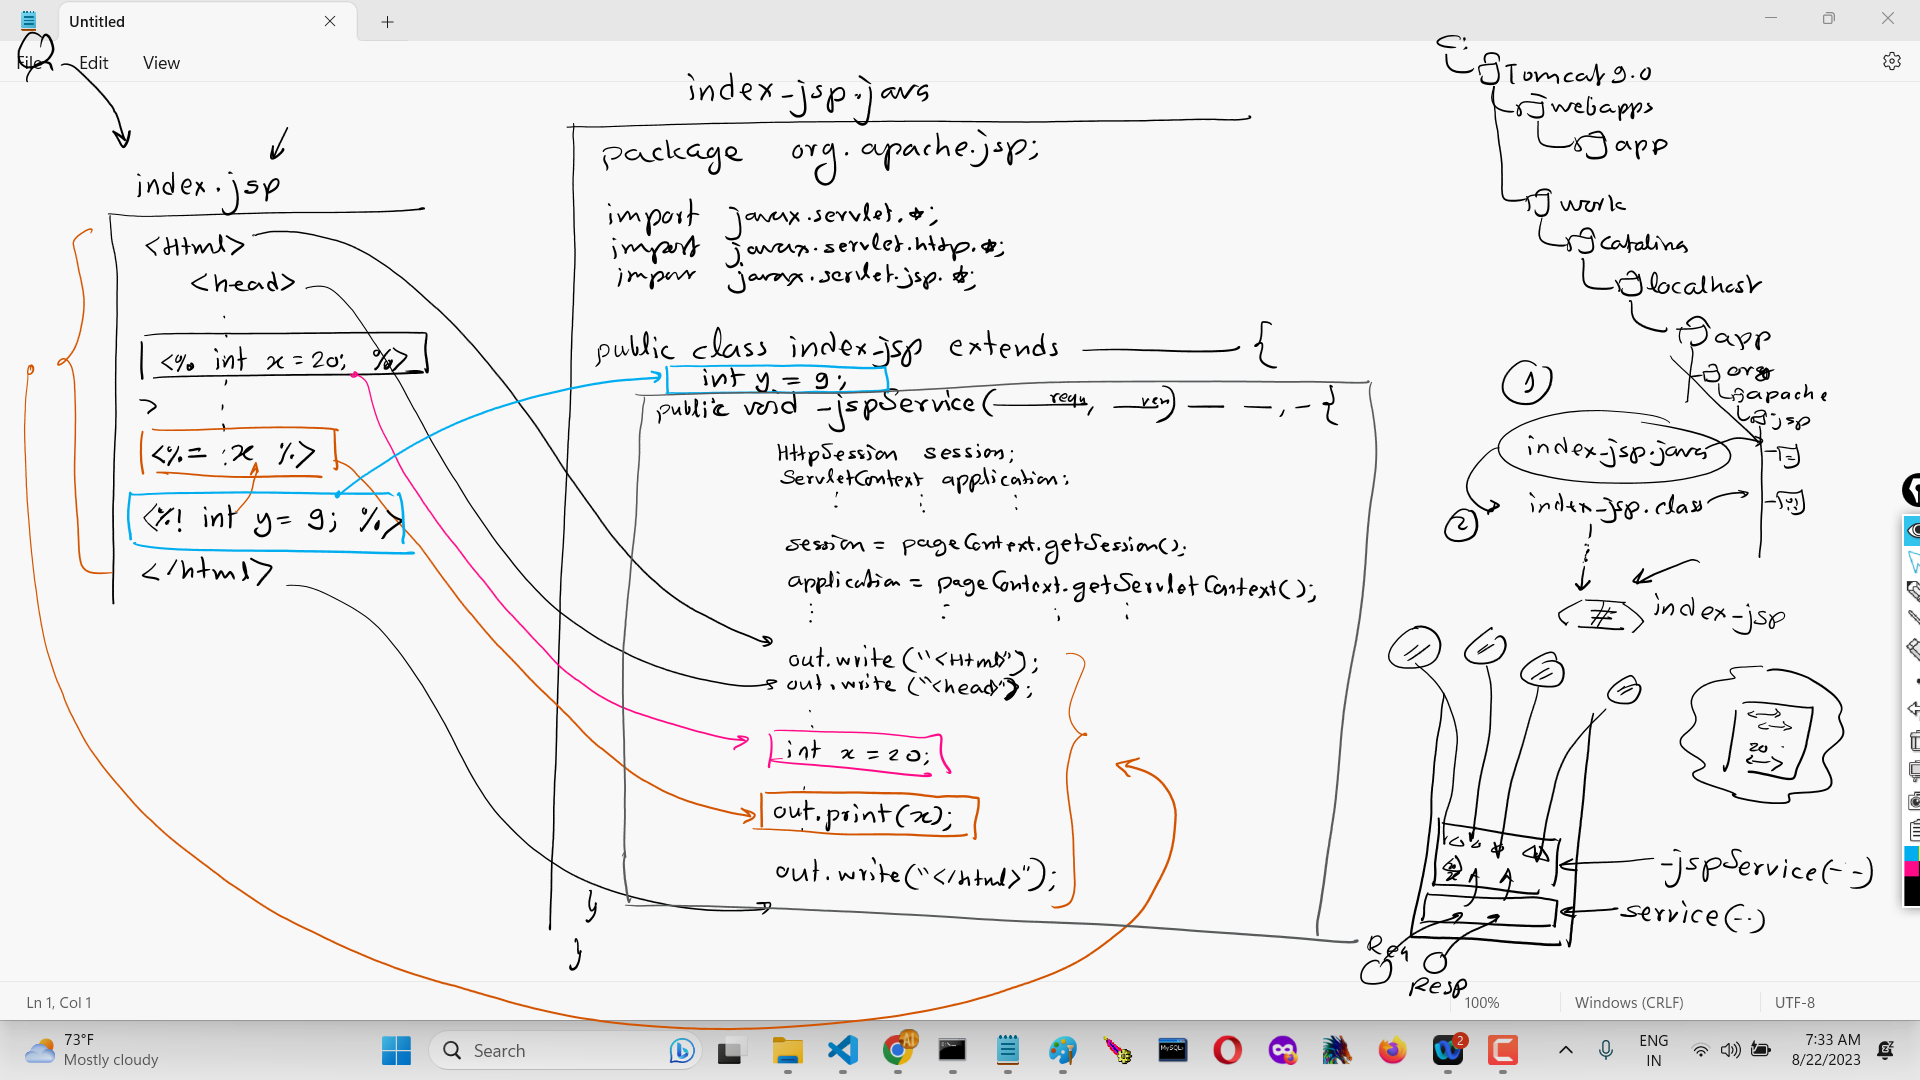 Untitled
File Edit View
index.jsp
<Html>
<head>
<% int x = 20; %>
>
<%= x %>
<%! int y = 9; %>
</html>
index_jsp.java
package org.apache.jsp;
import javax.servlet.*;
import javax.servlet.http.*;
impor javax.servlet.jsp.*;
public class index_jsp extends ——— {
int y = 9;
public void _jspService(
{
HttpSession session;
ServletContext application;
session = pageContext.getSession();
application = pageContext.getServletContext();
out.write("<Html>");
out.write("<head>");
int x = 20;
out.print(x);
out.write("</html>");
}
}
C:
Tomcat 9.0
webapps
app
work
catalina
localhost
app
org
apache
jsp
1
index_jsp.java
2
index_jsp.class
index_jsp
20
_jspService(--)
service(--)
Req
Resp
Ln 1, Col 1
100%
Windows (CRLF)
UTF-8
73°F
Mostly cloudy
Search
MySQL
2
ENG
IN
7:33 AM
8/22/2023